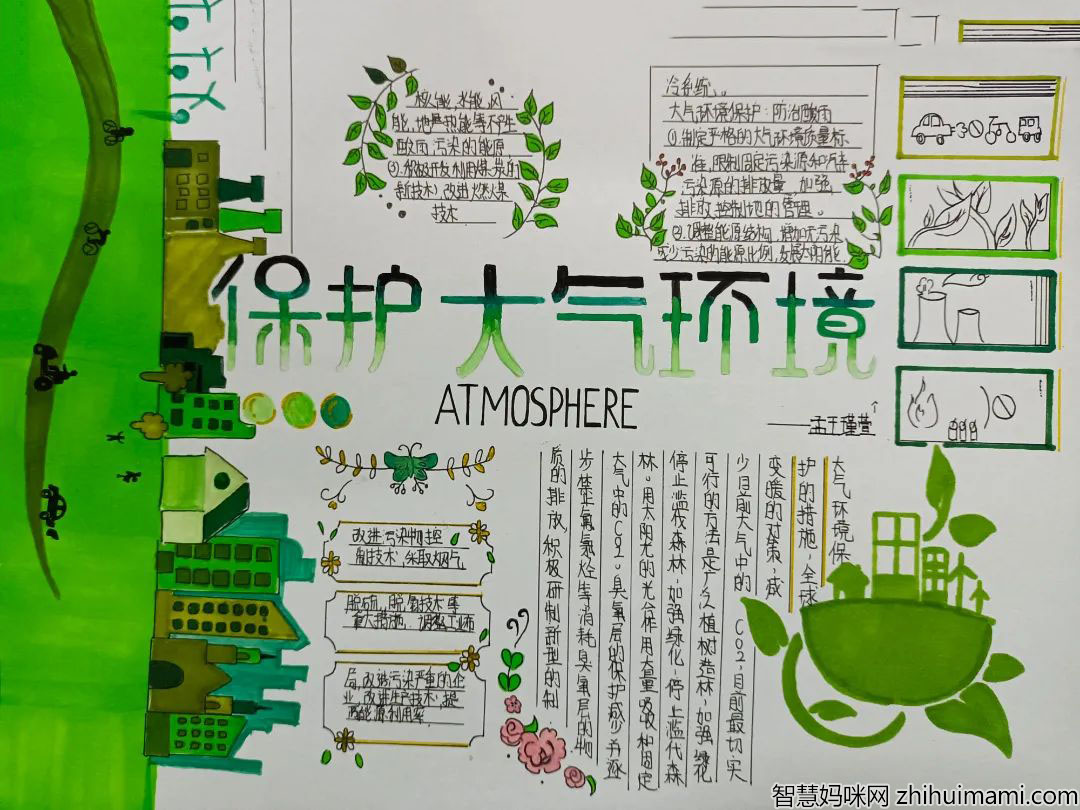 冷系统、。
大气环境保护：防治酸雨
①.制定严格的大气环境质量标
准.限制固定污染源和汽车
污染源的排放量.加强
排放控制地的管理。
②.调整能源结构,增加无污染
或少污染的能源比例,发展太阳能,
核能.水能.风
能,地热能等不产生
酸雨污染的能源
③.积极开发利用煤炭的
新技术,改进燃煤
技术
保护大气环境
ATMOSPHERE
孟王瑾萱
改进污染物控
制技术,采取烟气
脱硫、脱氮技术等
重大措施、调整工业布
局,改造污染严重的企
业,改进生产技术,提
高能源利用率
大气环境保
护的措施,全球
变暖的对策,减
少目前大气中的CO2,目前最切实
可行的方法是广久植树造林,加强绿化
停止滥伐森林,加强绿化,停止滥代森
林。用太阳光的光合作用大量吸收和固定
大气中的CO2。臭氧层的保护减少并逐
步禁止氟氯烃等消耗臭氧层的物
质的排放,积极研制新型的制
智慧妈咪网 zhihuimami.com